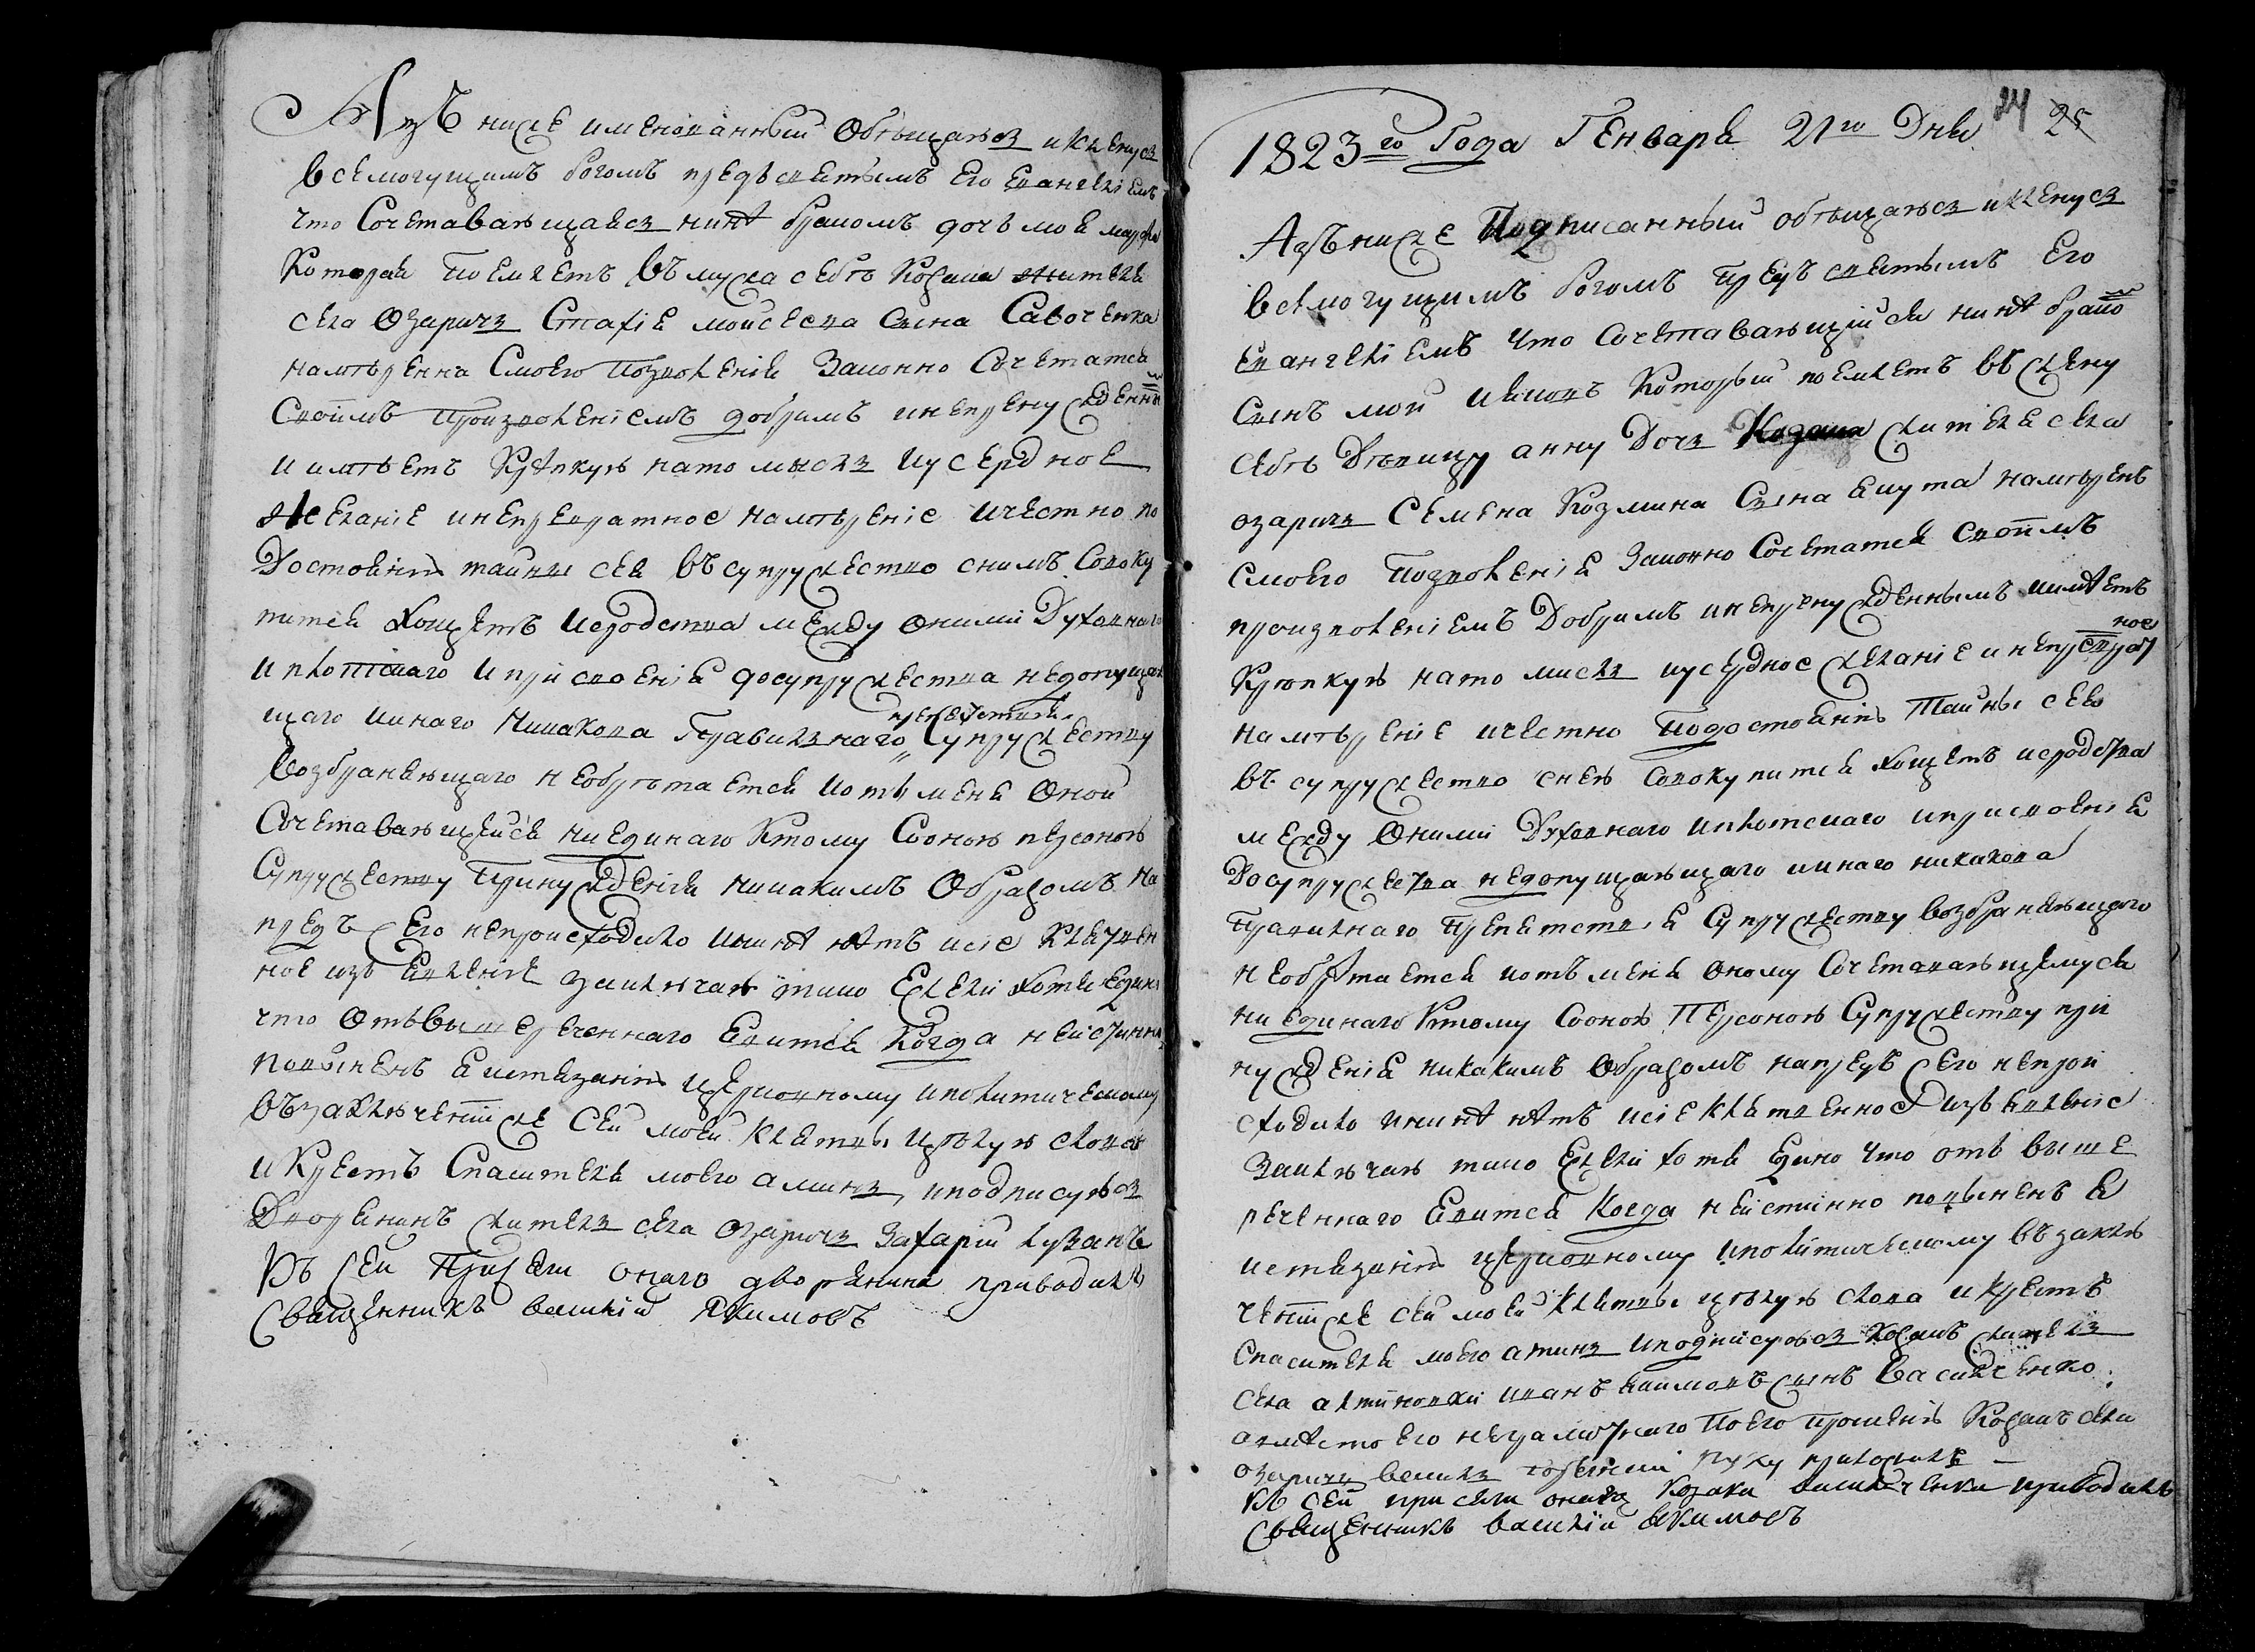 Азъ ниже именованный обѣщаюсь и кленусь
всемогущимъ богомъ предъ святымъ Его Евангеліемъ
что Сочетавающаясь нинѣ бракомъ дочь моя марфа
Которая Поемлетъ въ мужа себѣ Козака жителя
села Озаричь Стахія моисеева Сына Савченка
намѣренна Смоего Позволенія Законно Сочетатся
Своимъ Произволеніемъ добримъ инепренужденнымъ
и имѣетъ Крѣпкую нато мысль и усердное
желаніе инепревратное намѣреніе ичестно по
Достоянію тайны сея въ супружество снимъ Совоку
питися хощетъ исродства между оними Духовнаго
и плотскаго и присвоенія досупружества недопущаю
щаго и инаго Никакова Правильнаго препятствія Супружеству
возбраняющаго необрѣтается и отъ мене Оной
Сочетавающейся ниединаго Ктому Сооною персоною
Супружеству Принужденія никакимъ Образомъ на
предъ сего непроисходило и нинѣ нѣтъ и сіе Клятвен
ное изъявленіе заключаю тако Ежели хотя Едино
что отъ вышереченнаго Явится Когда неистинно
повиненъ я истязанію церковному и политическому
въ заключеніи же Сей моей Клятвы цѣлую слова
и Крестъ Спасителя моего аминь, и подписуюсь
Дворянинъ житель села Озаричь Захарій лузанъ
Къ Сей Присяги онаго дворянина приводилъ
Священникъ василій Якимовъ
24 25
1823го Года Генваря 21го Дня
Азъ ниже Подписанный обѣщаюсь и кленусь
всемогущимъ богомъ Предъ святымъ Его
Евангеліемъ что Сочетавающійся нинѣ бракомъ
Сынъ мой Яковъ Который поемлетъ въ жену
себѣ Дѣвицу анну Дочь Козака жителя села
озаричь Семена Козмина Сына Якута намѣренъ
Смоего Позволенія Законно Сочетатся Своимъ
произволеніемъ Добримъ инепренужденнымъ и имѣетъ
Крѣпкую нато мисль и усердное желаніе и непревратное
намѣреніе ичестно Подостоянію Тайны сея
въ супружество снею Совокупится хощетъ исродства
между Оними Духовнаго и плотскаго и присвоенія
Досупружества недопущающаго и инаго никакова
Правилнаго Препятствія Супружеству возбраняющаго
необрѣтается и отъ мене оному Сочетавающемуся
ниединаго Ктому Сооною Персоною Супружеству при
нужденія никакимъ Образомъ напредъ сего непрои
сходило и нинѣ нѣтъ и сіе клятвенное изъявленіе
Заключаю тако Ежели хотя Едино что отъ выше
реченнаго Явится Когда неистинно повиненъ я
истязанію церковному и политическому въ заклю
ченіи же сей моей клятвы цѣлую слова и крестъ
Спасителя моего аминь и подписуюсь козакъ житель
села алтиновки иванъ Якимовъ Сынъ Василченко
авмѣсто его неграмотнаго По его прошенію Козакъ села
озаричь руку приложилъ
Къ сей присяги онаго Козака василченка приводилъ
Священникъ василій Якимовъ